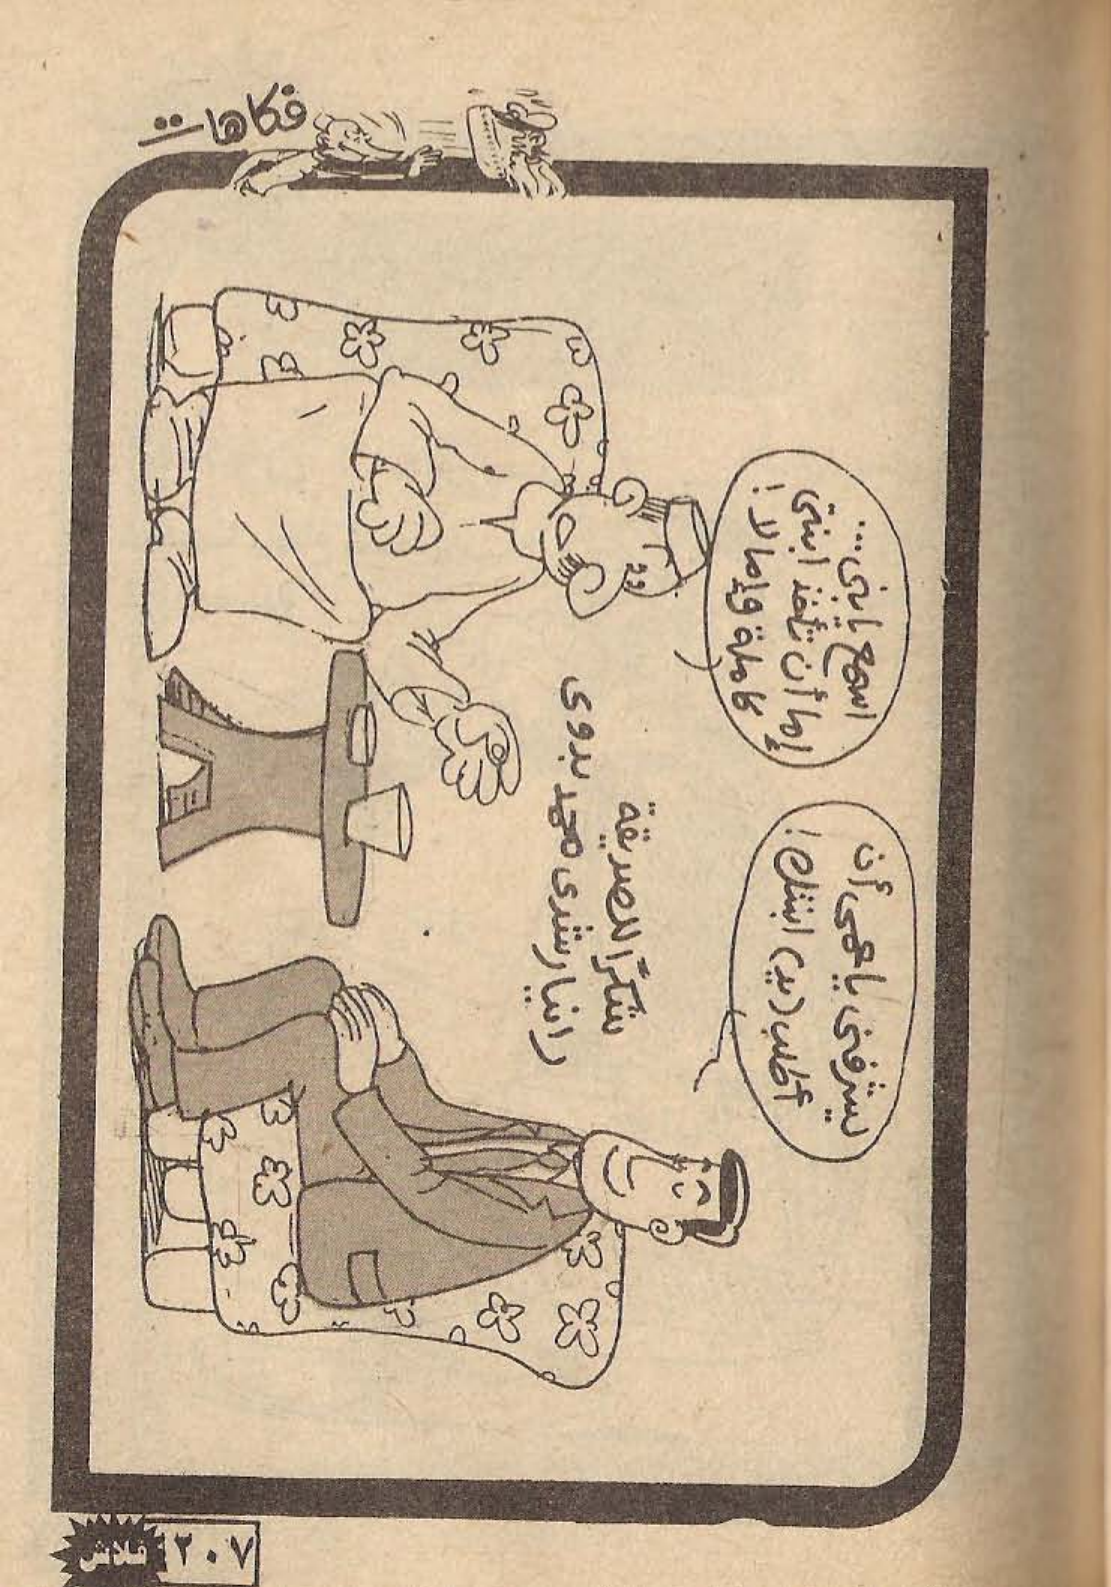 فكاهات
يشرفنى يا عمى أن
أطلب (يد) ابنتك!
اسمع يا بنى...
إما أن تأخذ ابنتى
كاملة وإما لا!
شكرًا للصديقة
رانيا رشدى محمد بدوى
٢٠٧
فلاش